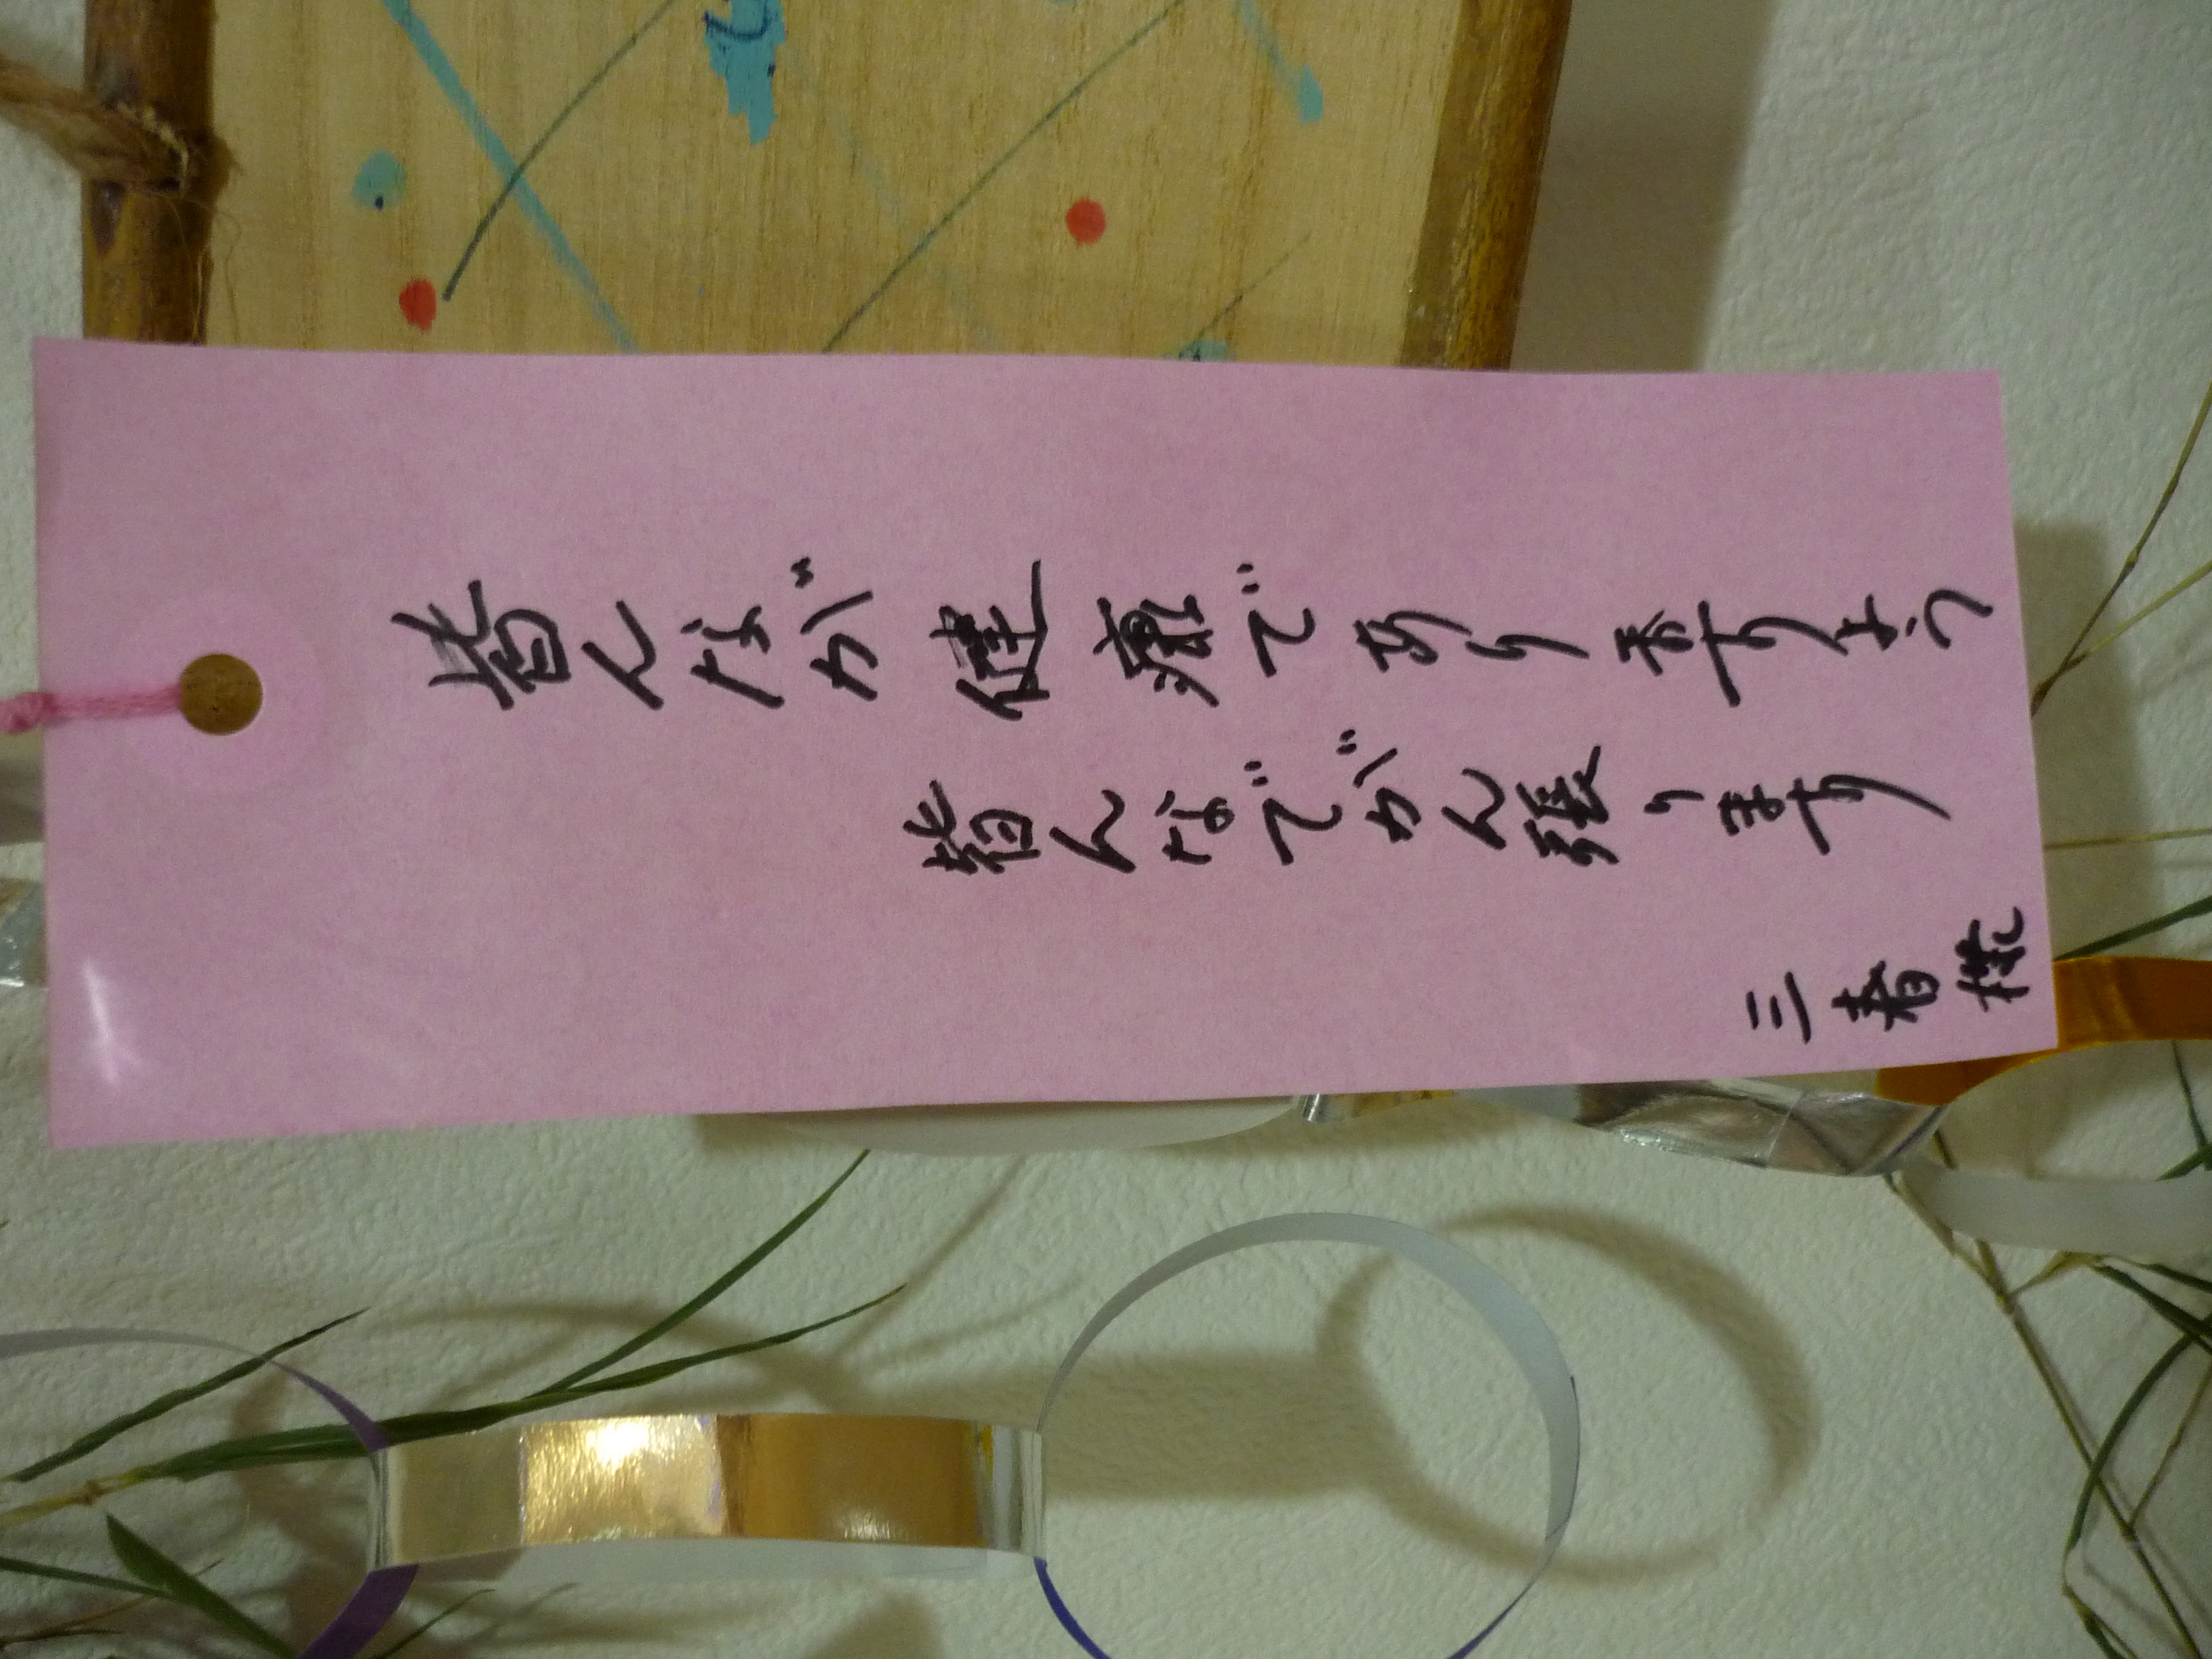 皆んなが健康でありますよう
皆んなでがん張ります
三春桜